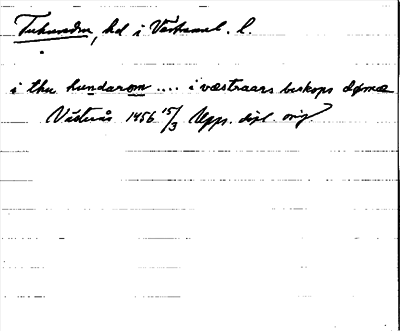 Tuhundra, hd i Västmanl. l.
i thu hundarom .... i væstraars biskops døme
Västerås 1456 15/3 Upps. dipl. orig.